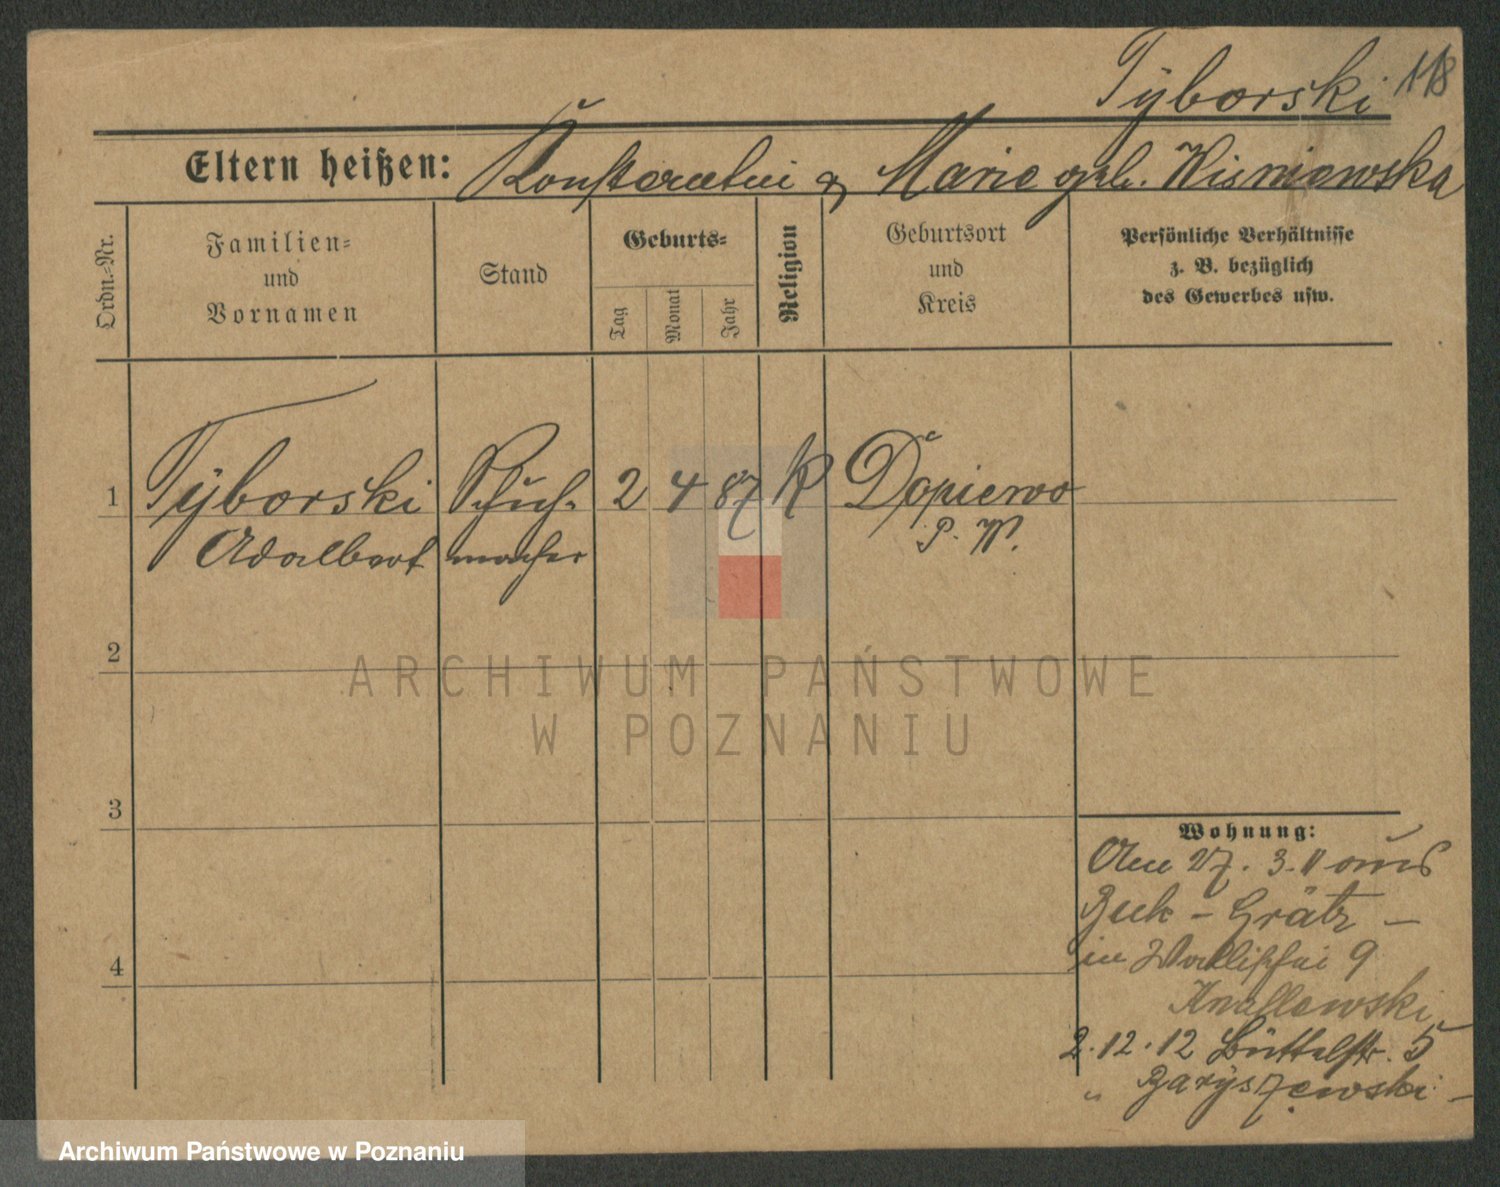 Tÿborski 118
Eltern heißen: Konstantin & Marie geb. Wisniewska
Ordn.=Nr.
Familien=
und
Vornamen
Stand
Geburts=
Tag
Monat
Jahr
Religion
Geburtsort
und
Kreis
Persönliche Verhältnisse
z. B. bezüglich
des Gewerbes usw.
1 Tÿborski Schuh= 2 4 87 K Dopiewo
Adalbert macher P. W.
2
3
4
Wohnung:
Am 27. 3. 11 aus
Buk - Grätz -
in Wallischei 9
2. 12. 12 Büttelstr. 5
" Baryszewski
ARCHIWUM PAŃSTWOWE
W POZNANIU
Archiwum Państwowe w Poznaniu